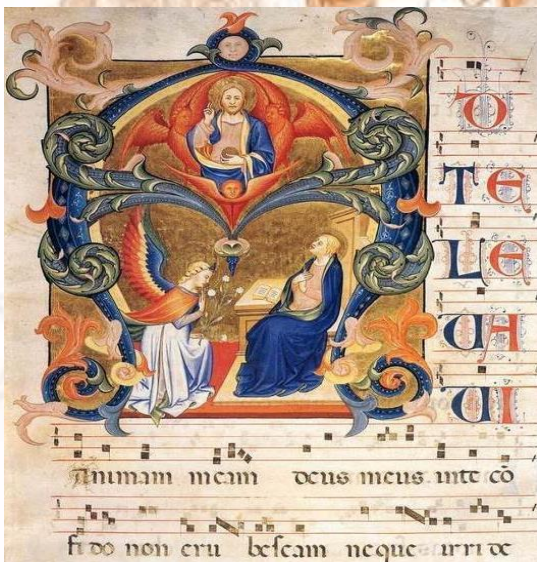 A
D
TE
LE
UA
UI
animam meam deus meus inte cō
fi do non eru bescam neque irri de